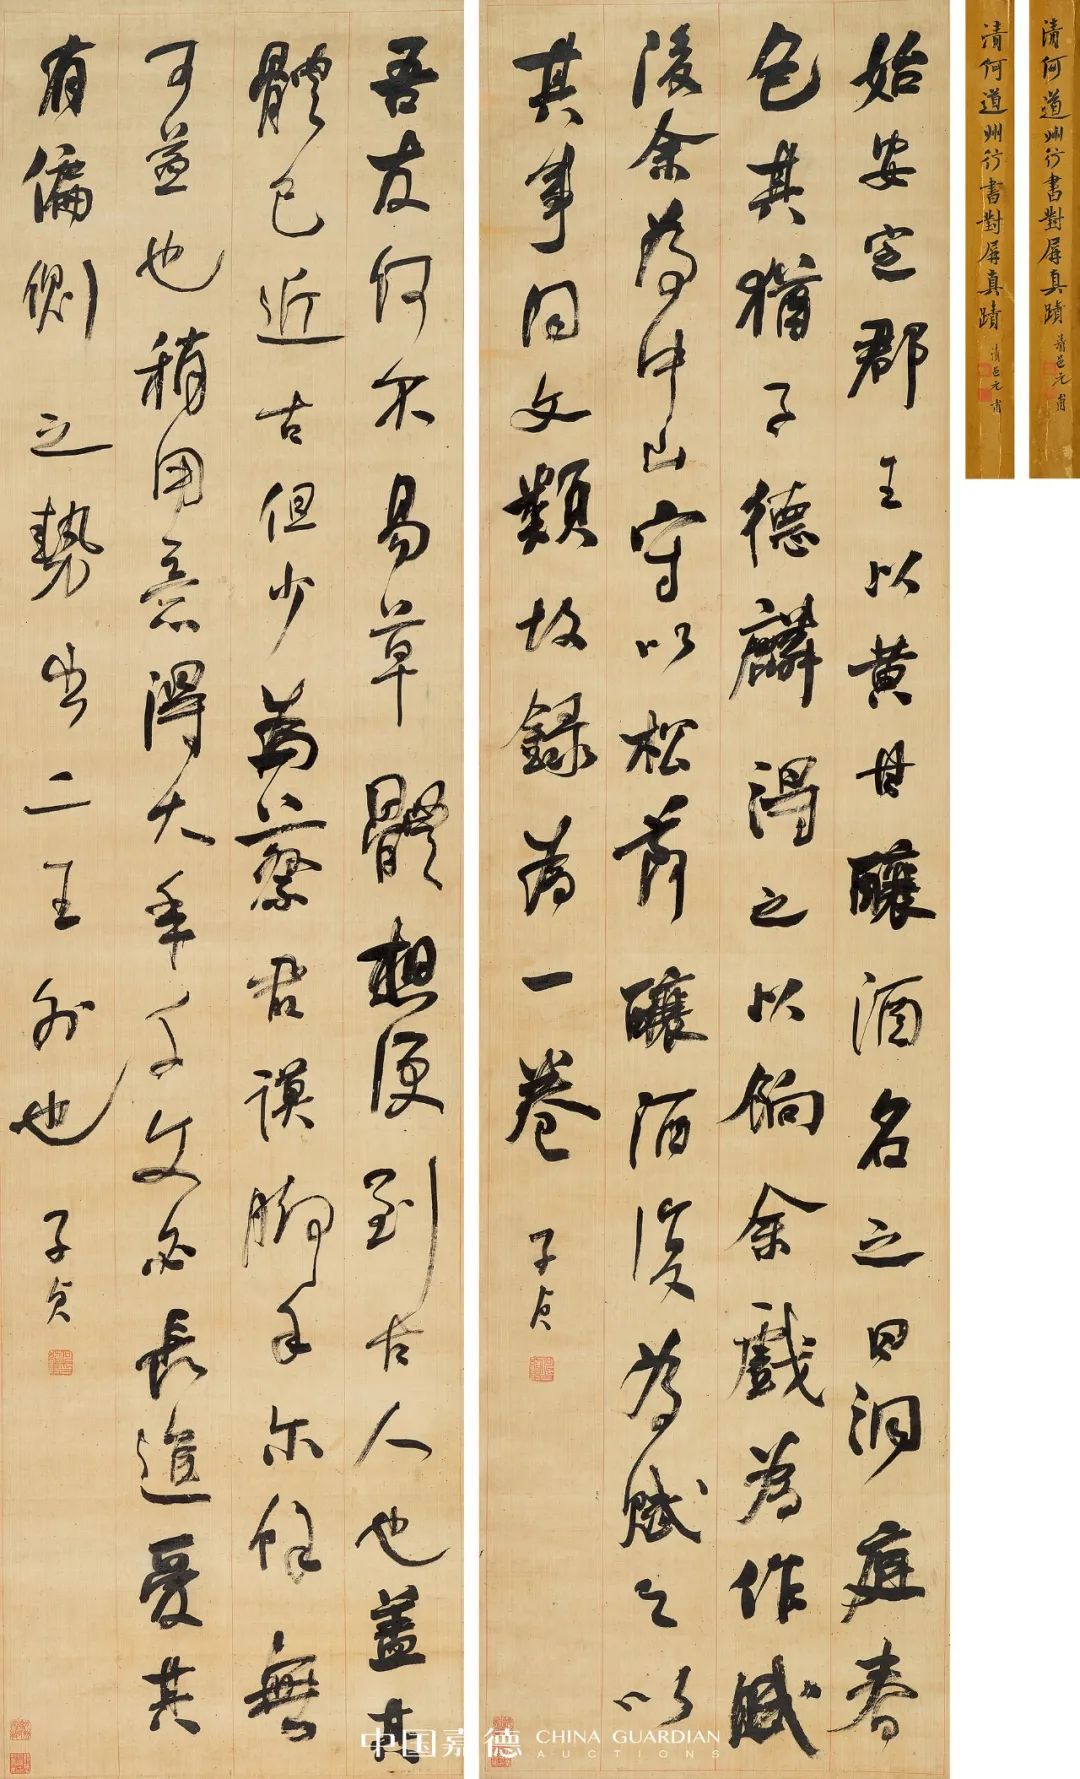 清何道州行書對屏真蹟
清何道州行書對屏真蹟
始安定郡王以黄甘釀酒名之曰洞庭春
色其猶子德麟得之以餉余戲為作賦
後余為中山守以松節釀酒復為賦之以
其事同文類故録為一卷 子貞
吾友何尔易草體想便到古人也蓋其
體已近古但少為蔡君謨脚手尔餘無
可益也稍用意得大年千文必長進愛其
有偏側之勢出二王外也 子貞
中国嘉德 CHINA GUARDIAN
AUCTIONS